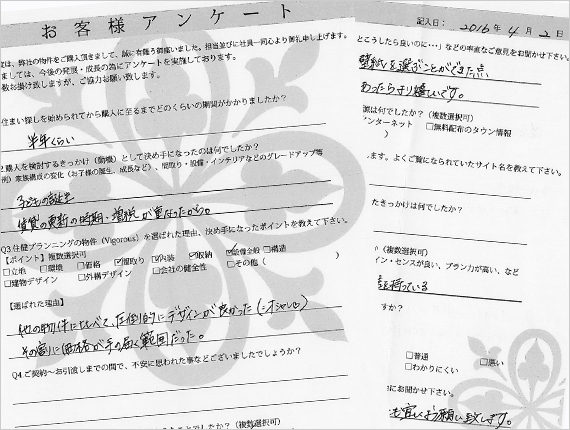 お客様アンケート
度は、弊社の物件をご購入頂きまして、誠に有難う御座いました。担当並びに社員一同心より御礼申し上げます。
ましては、今後の発展・成長の為にアンケートを実施しております。
数お掛け致しますが、ご協力お願い致します。
住まい探しを始められてから購入に至るまでどのくらいの期間がかかりましたか?
半年くらい
2.購入を検討するきっかけ(動機)として決め手になったのは何でしたか?
例)家族構成の変化(お子様の誕生、成長など)、間取り・設備・インテリアなどのグレードアップ等
子供の誕生
賃貸の更新の時期・増税が重なったから。
Q3.住健プランニングの物件(Vigorous)を選ばれた理由、決め手になったポイントを教えて下さい。
【ポイント】複数選択可
□立地 □環境 □価格 ☑間取り ☑内装 ☑収納 ☑設備全般 □構造
□建物デザイン □外構デザイン □会社の健全性 □その他( )
【選ばれた理由】
他の物件に比べて、圧倒的にデザインが良かった(オシャレ♡)
その割に価格が手の届く範囲だった。
Q4.ご契約〜お引渡しまでの間で、不安に思われた事などございましたでしょうか?
ことでしたか?(複数選択可)
記入日: 2016年 4月 2日
とこうしたら良いのに・・」などの率直なご意見をお聞かせ下さい。
壁紙を選ぶことができた点
あったらより嬉しいです。
源は何でしたか?(複数選択可)
ンターネット □無料配布のタウン情報
)
ます。よくご覧になられていたサイト名を教えて下さい。
たきっかけは何でしたか?
(複数選択可)
イン・センスが良い、プラン力が高い、など
を持っている
すか?
□普通 □悪い
□わかりにくい
にお聞かせ下さい。
も宜しくお願い致します。